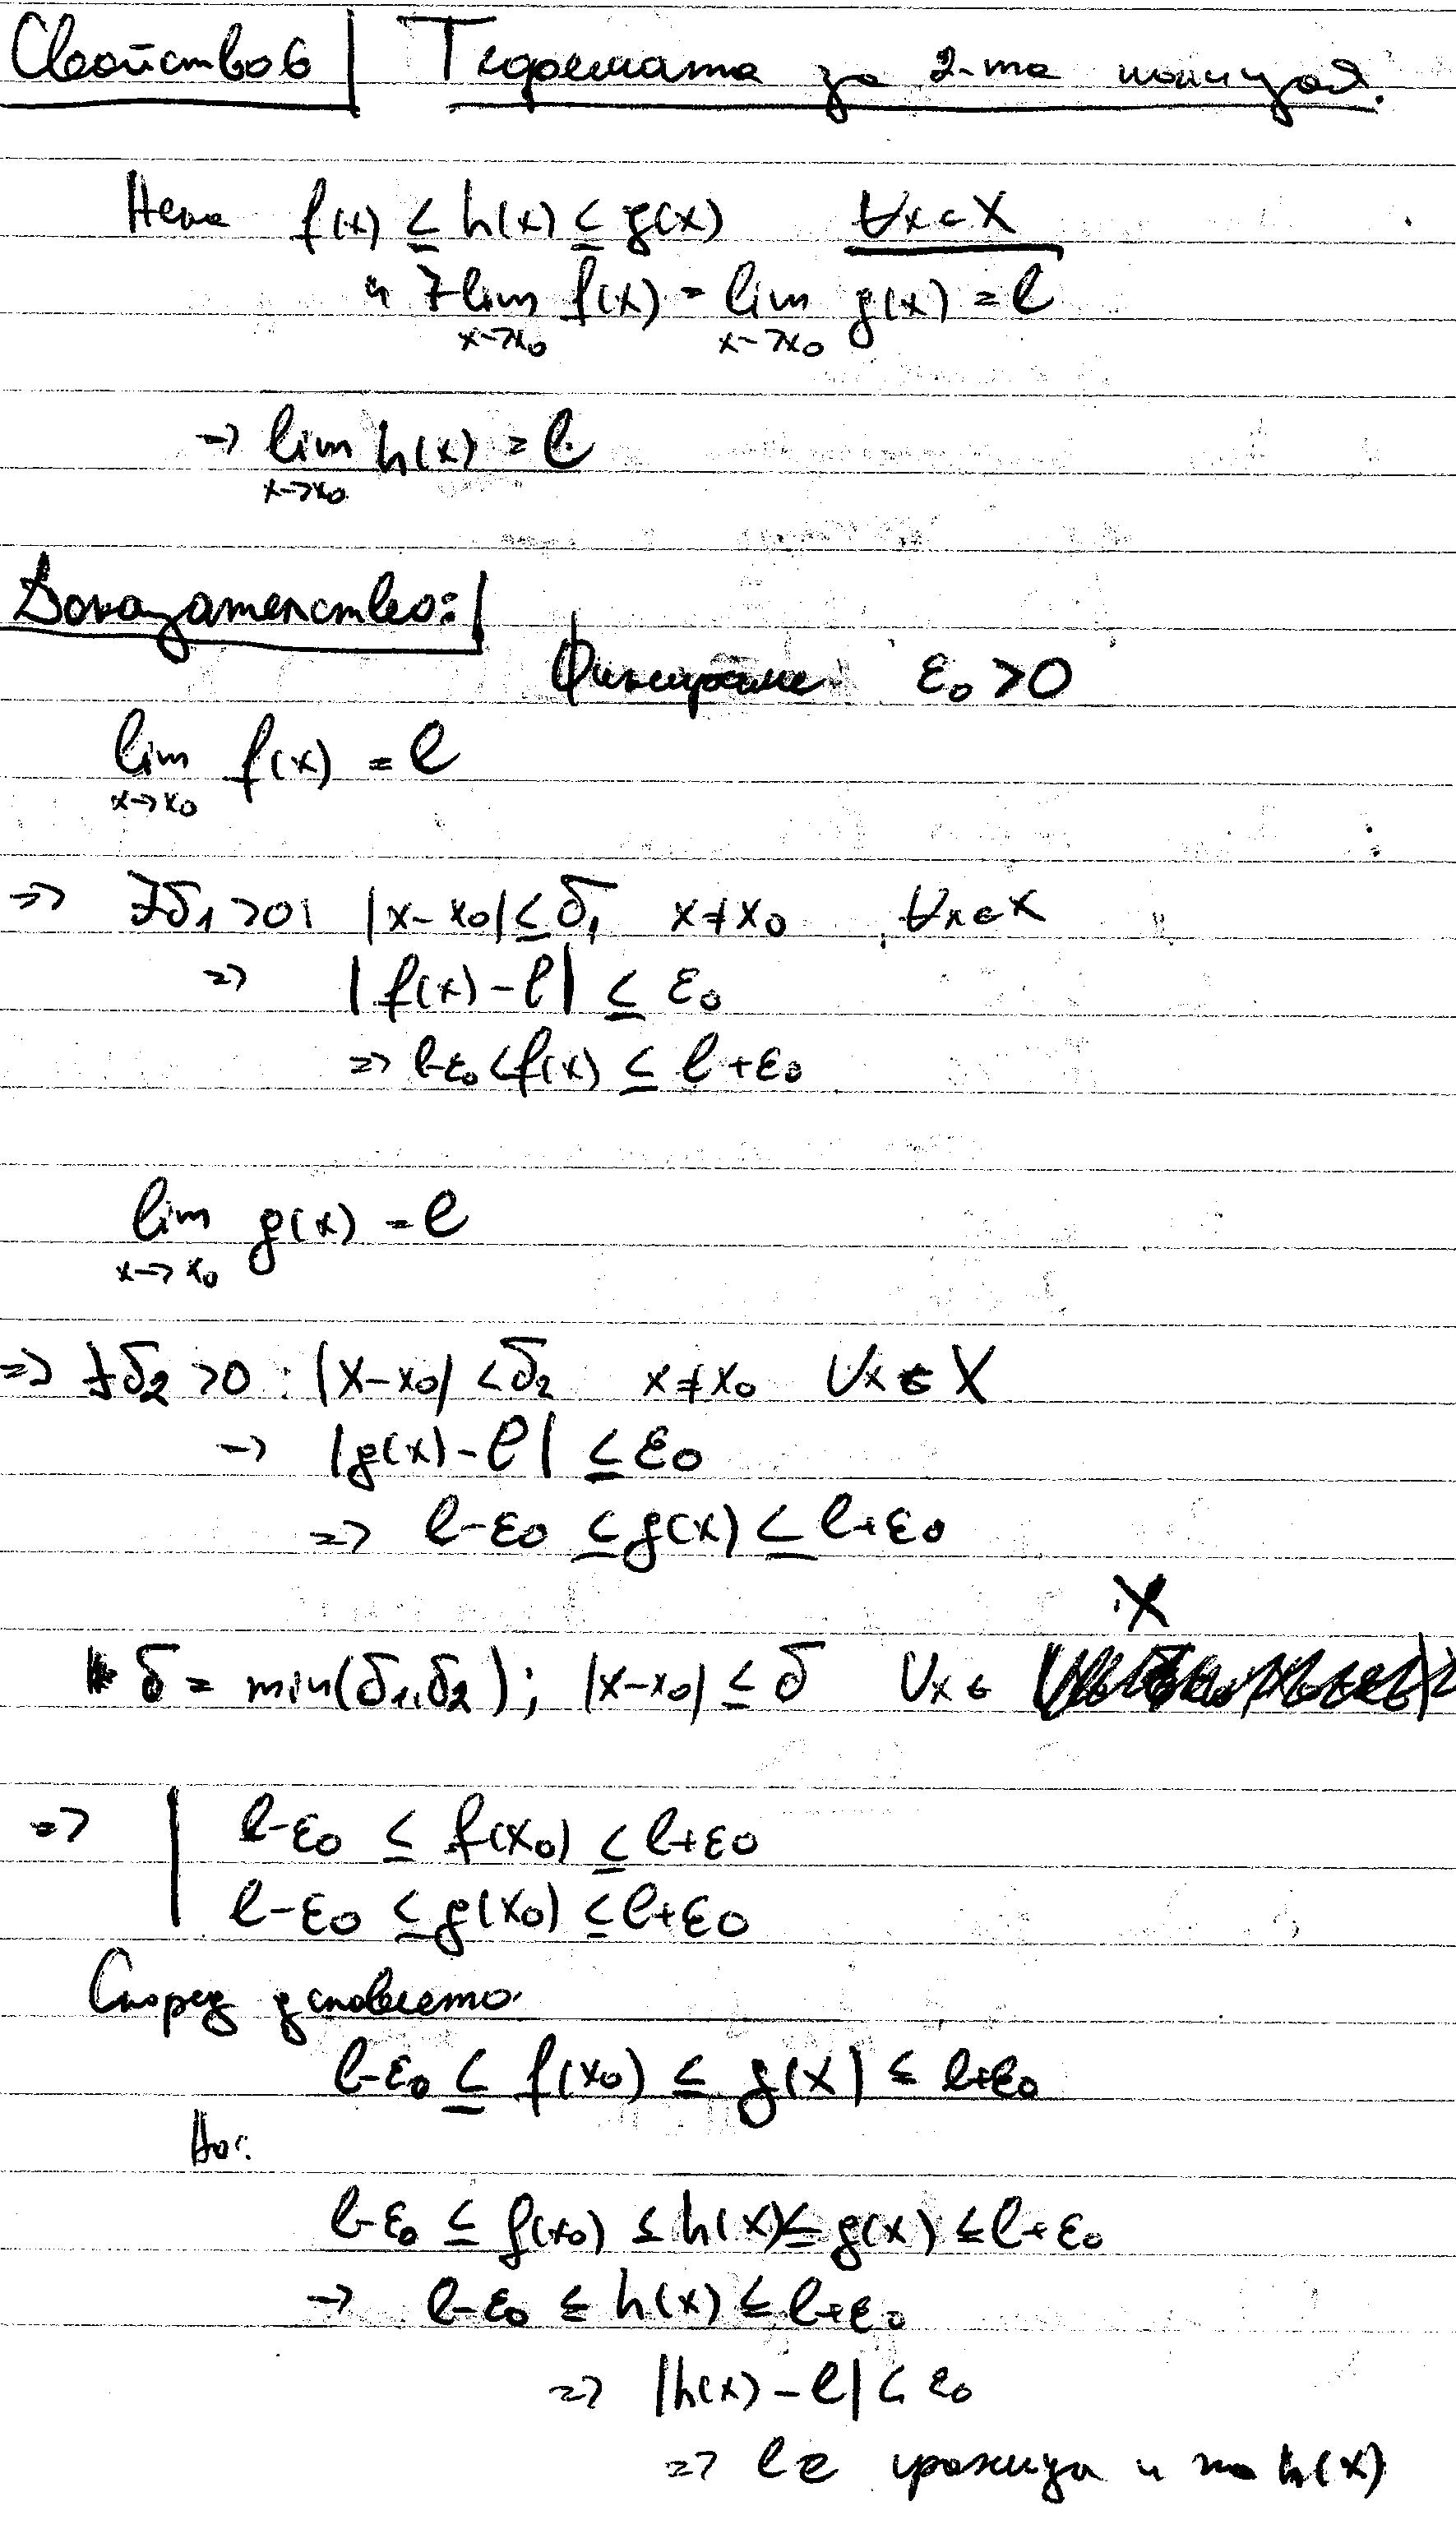 Свойство 6 | Теоремата за 2-та полицая.
Нека f(x) ≤ h(x) ≤ g(x) ∀x∈X
и ∃ lim f(x) = lim g(x) = l
x→x₀ x→x₀
→ lim h(x) = l
x→x₀
Доказателство:
Фиксираме ε₀ > 0
lim f(x) = l
x→x₀
=> ∃δ₁>0: |x-x₀| ≤ δ₁ x≠x₀, ∀x∈X
=> |f(x)-l| ≤ ε₀
=> l-ε₀ < f(x) ≤ l+ε₀
lim g(x) = l
x→x₀
=> ∃δ₂>0: |x-x₀| < δ₂ x≠x₀ ∀x∈X
→ |g(x)-l| ≤ ε₀
=> l-ε₀ ≤ g(x) ≤ l+ε₀
X
δ = min(δ₁,δ₂); |x-x₀| ≤ δ ∀x∈
=> | l-ε₀ ≤ f(x₀) ≤ l+ε₀
l-ε₀ ≤ g(x₀) ≤ l+ε₀
Според условието
l-ε₀ ≤ f(x₀) ≤ g(x) ≤ l+ε₀
Но:
l-ε₀ ≤ f(x₀) ≤ h(x) ≤ g(x) ≤ l+ε₀
→ l-ε₀ ≤ h(x) ≤ l+ε₀
=> |h(x)-l| < ε₀
=> l е граница и на h(x)